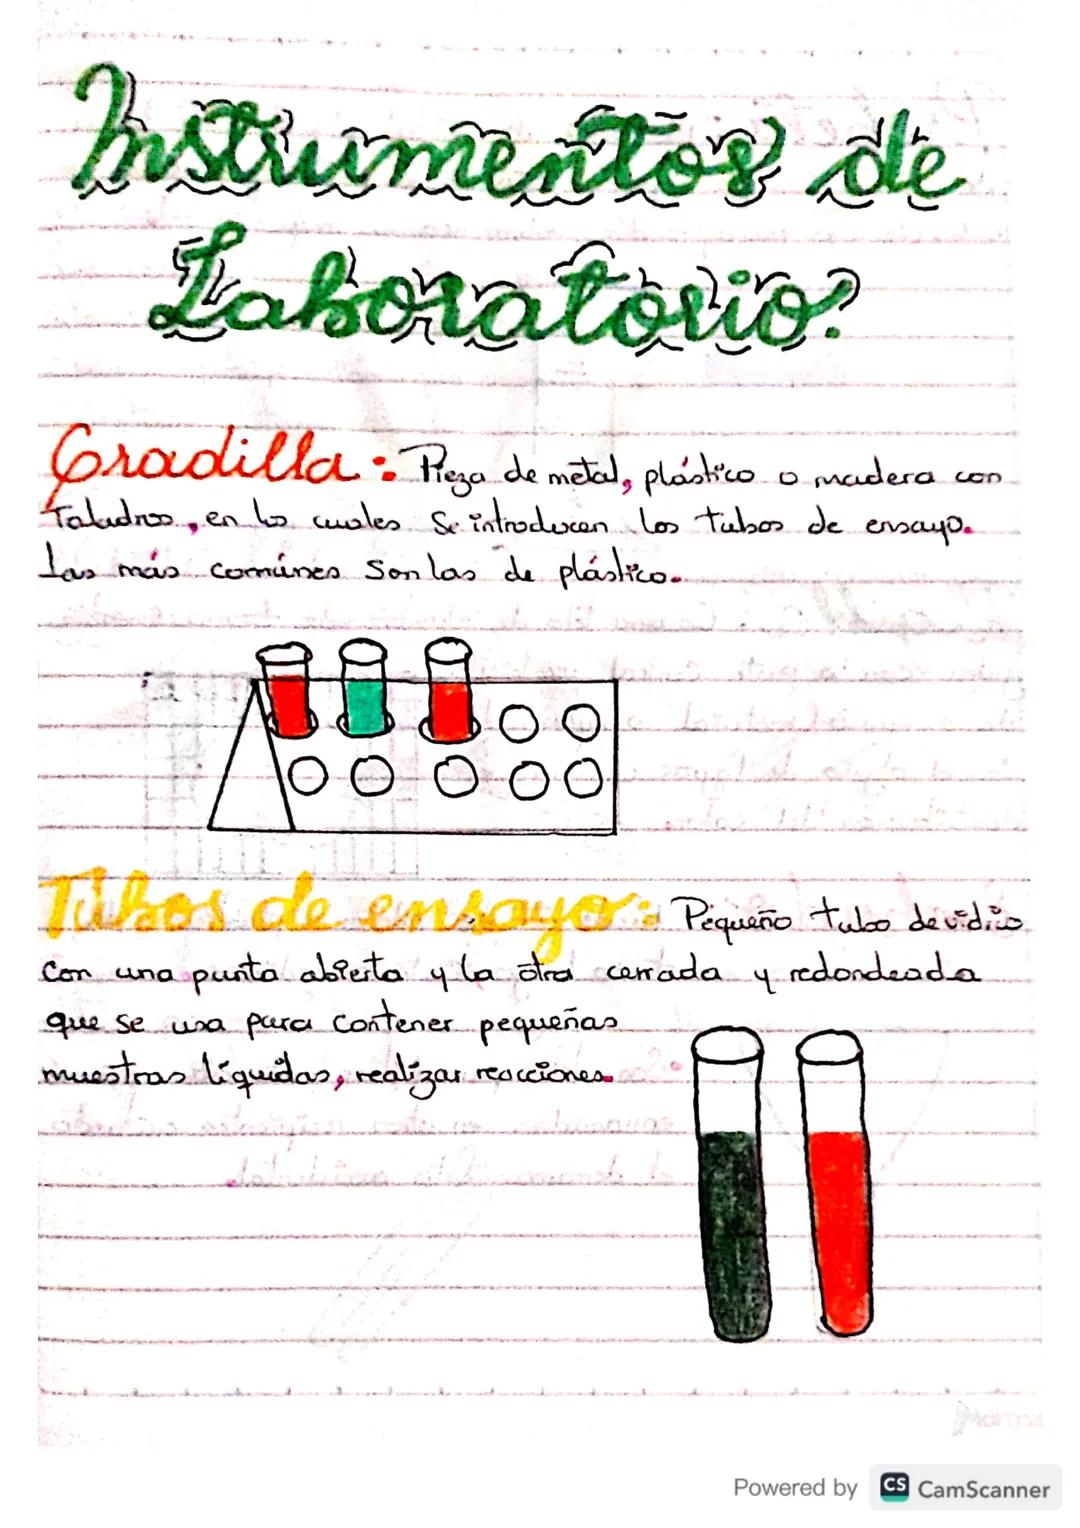 Instrumentos de
Laboratorio?
Gradilla: Pieza de metal, plástico o madera con
Taladros, en los cuales se introducen los tubos de ensayo.
Las más comúnes son las de plástico.
Tubos de ensayo: Pequeño tubo de vidrio
con una punta abierta y la otra cerrada y redondeada
que se usa para contener pequeñas
muestras líquidas, realizar reacciones.
Powered by CS CamScanner